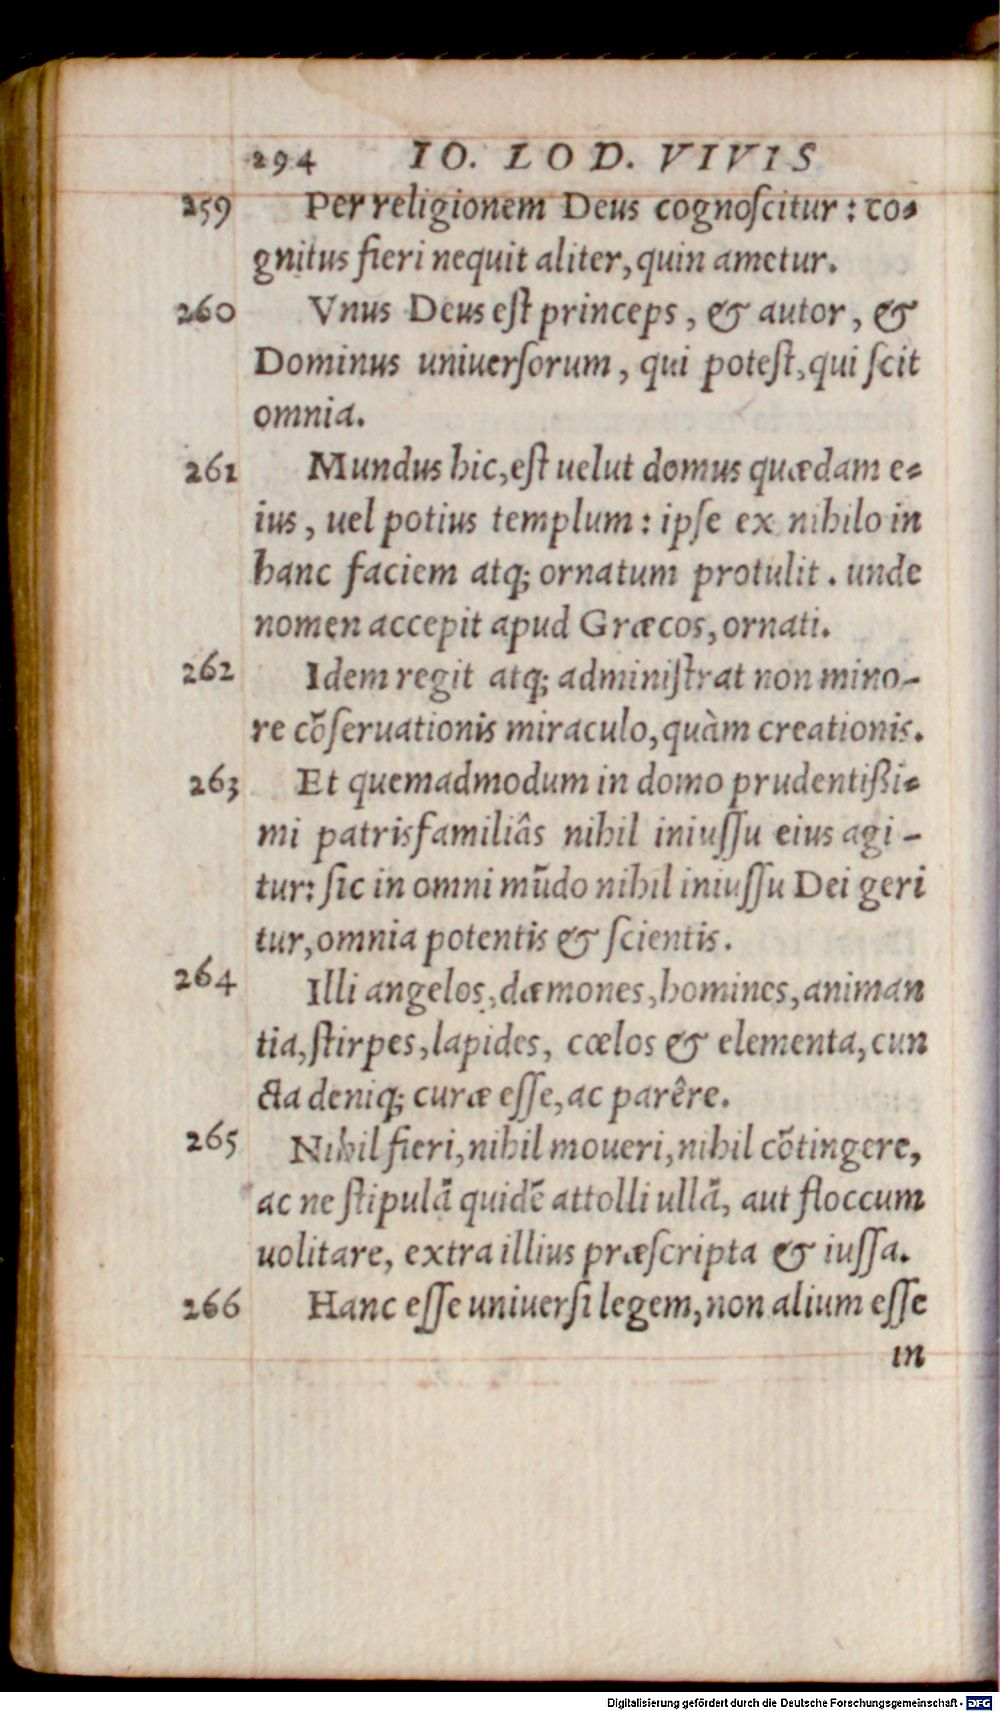 294 IO. LOD. VIVIS
259 Per religionem Deus cognoſcitur: co-
gnitus fieri nequit aliter, quin ametur.
260 Vnus Deus eſt princeps, & autor, &
Dominus uniuerſorum, qui poteſt, qui ſcit
omnia.
261 Mundus hic, eſt uelut domus quædam e-
ius, uel potius templum: ipſe ex nihilo in
hanc faciem atq; ornatum protulit. unde
nomen accepit apud Græcos, ornati.
262 Idem regit atq; adminiſtrat non mino-
re cõſeruationis miraculo, quàm creationis.
263 Et quemadmodum in domo prudentißi-
mi patrisfamiliâs nihil iniuſſu eius agi-
tur: ſic in omni mũdo nihil iniuſſu Dei geri
tur, omnia potentis & ſcientis.
264 Illi angelos, dæmones, homines, animan
tia, ſtirpes, lapides, cœlos & elementa, cun
cta deniq; curæ eſſe, ac parêre.
265 Nihil fieri, nihil moueri, nihil cõtingere,
ac ne ſtipulã quidẽ attolli ullã, aut floccum
uolitare, extra illius præſcripta & iuſſa.
266 Hanc eſſe uniuerſi legem, non alium eſſe
in
Digitalisierung gefördert durch die Deutsche Forschungsgemeinschaft - DFG